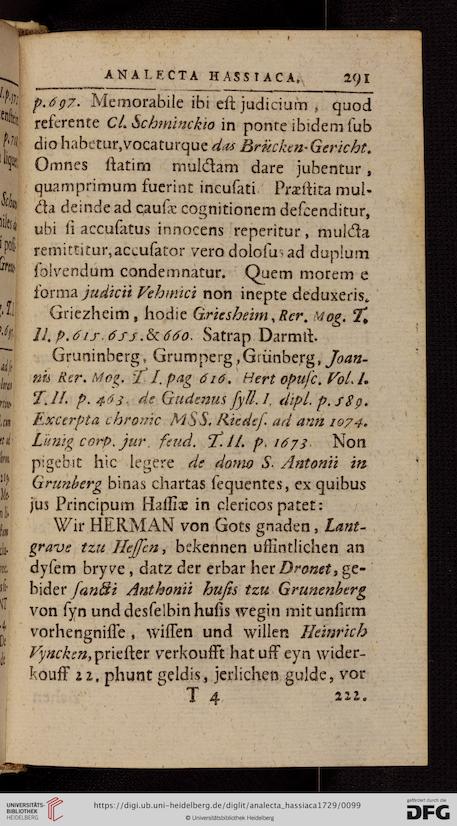 ANALECTA HASSIACA. 291
p. 697. Memorabile ibi eſt judicium, quod
referente Cl. Schminckio in ponte ibidem ſub
dio habetur, vocaturque das Brücken-Gericht.
Omnes ſtatim mulctam dare jubentur,
quamprimum fuerint incuſati. Præſtita mul-
cta deinde ad cauſæ cognitionem deſcenditur,
ubi ſi accuſatus innocens reperitur, mulcta
remittitur, accuſator vero doloſus ad duplum
ſolvendum condemnatur. Quem morem e
forma judicii Vehmici non inepte deduxeris.
Griezheim, hodie Griesheim, Rer. Mog. T.
II. p. 615. 655. & 660. Satrap. Darmſt.
Gruninberg, Grumperg, Grünberg, Joan-
nis Rer. Mog. T. I. pag 616. Hert opuſc. Vol. I.
T. II. p. 463. de Gudenus ſyll. I. dipl. p. 589.
Excerpta chronic. MSS. Riedeſ. ad ann 1074.
Lünig corp. jur. feud. T. II. p. 1673. Non
pigebit hic legere de domo S. Antonii in
Grunberg binas chartas ſequentes, ex quibus
jus Principum Haſſiæ in clericos patet:
Wir HERMAN von Gots gnaden, Lant-
grave tzu Heſſen, bekennen uffintlichen an
dyſem bryve, datz der erbar her Dronet, ge-
bider ſancti Anthonii huſis tzu Grunenberg
von ſyn und desſelbin huſis wegin mit unſirm
vorhengniſſe, wiſſen und willen Heinrich
Vyncken, prieſter verkoufft hat uff eyn wider-
kouff 22. phunt geldis, jerlichen gulde, vor
T 4 222.
UNIVERSITÄTS-
BIBLIOTHEK
HEIDELBERG
https://digi.ub.uni-heidelberg.de/diglit/analecta_hassiaca1729/0099
© Universitätsbibliothek Heidelberg
gefördert durch die
DFG